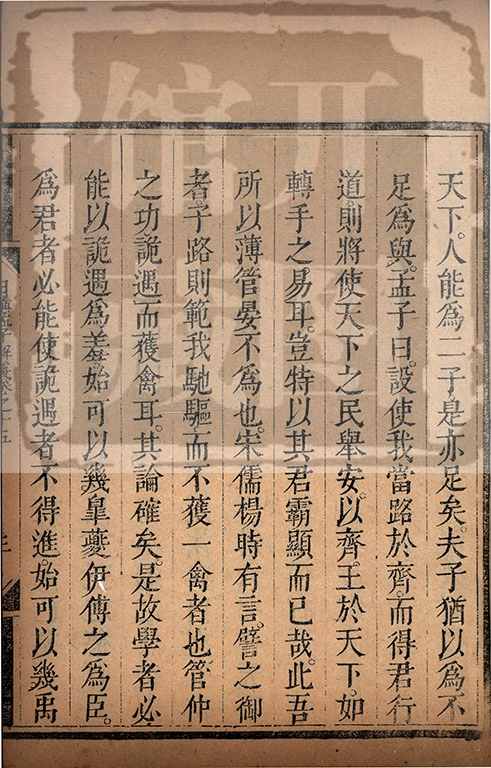 天下。人能爲二子。是亦足矣。夫子猶以爲不
足爲與。孟子曰。設使我當路於齊。而得君行
道。則將使天下之民舉安。以齊王於天下。如
轉手之易耳。豈特以其君霸顯而已哉。此吾
所以薄管晏不爲也。宋儒楊時有言。譬之御
者。子路則範我馳驅而不獲一禽者也。管仲
之功。詭遇而獲禽耳。其論確矣。是故學者必
能以詭遇爲羞。始可以幾臯夔伊傅之爲臣。
爲君者必能使詭遇者不得進。始可以幾禹